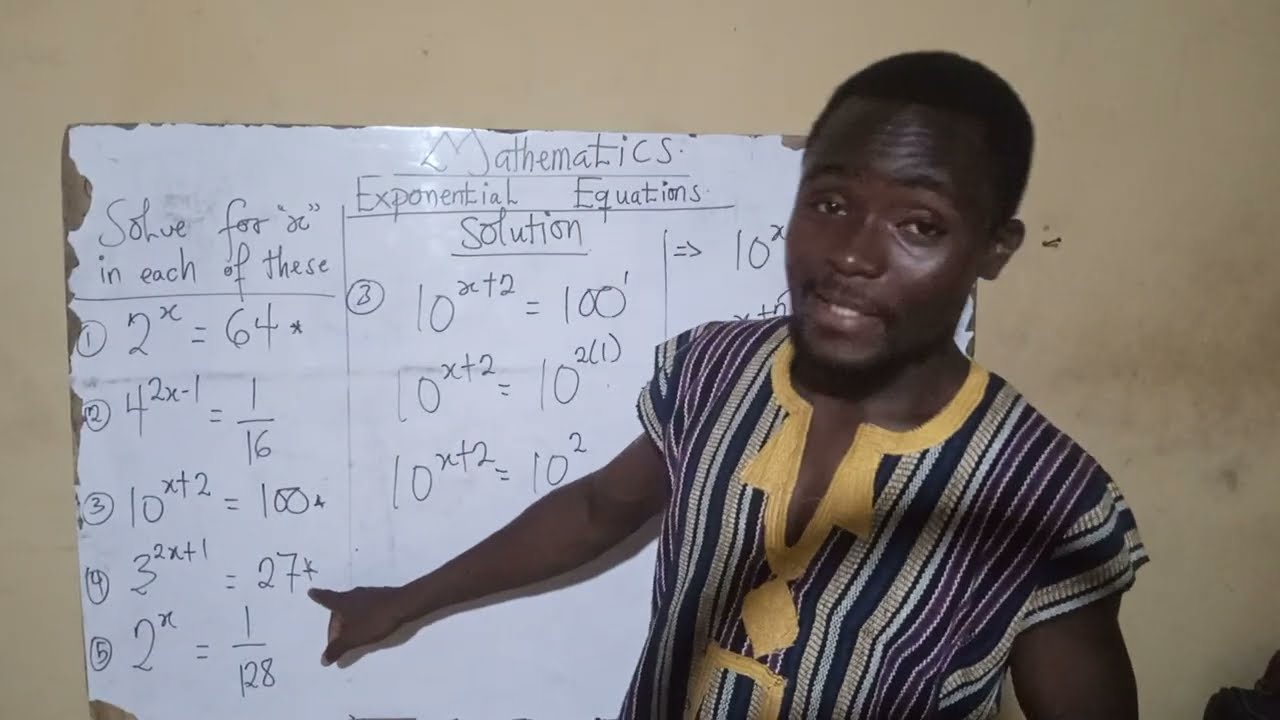 Mathematics.
Exponential Equations.
Solve for "x"
in each of these
① 2^x = 64 *
② 4^2x-1 = 1/16
③ 10^x+2 = 100 *
④ 3^2x+1 = 27 *
⑤ 2^x = 1/128
Solution
③ 10^x+2 = 100^1
10^x+2 = 10^2(1).
10^x+2 = 10^2
=> 10^x